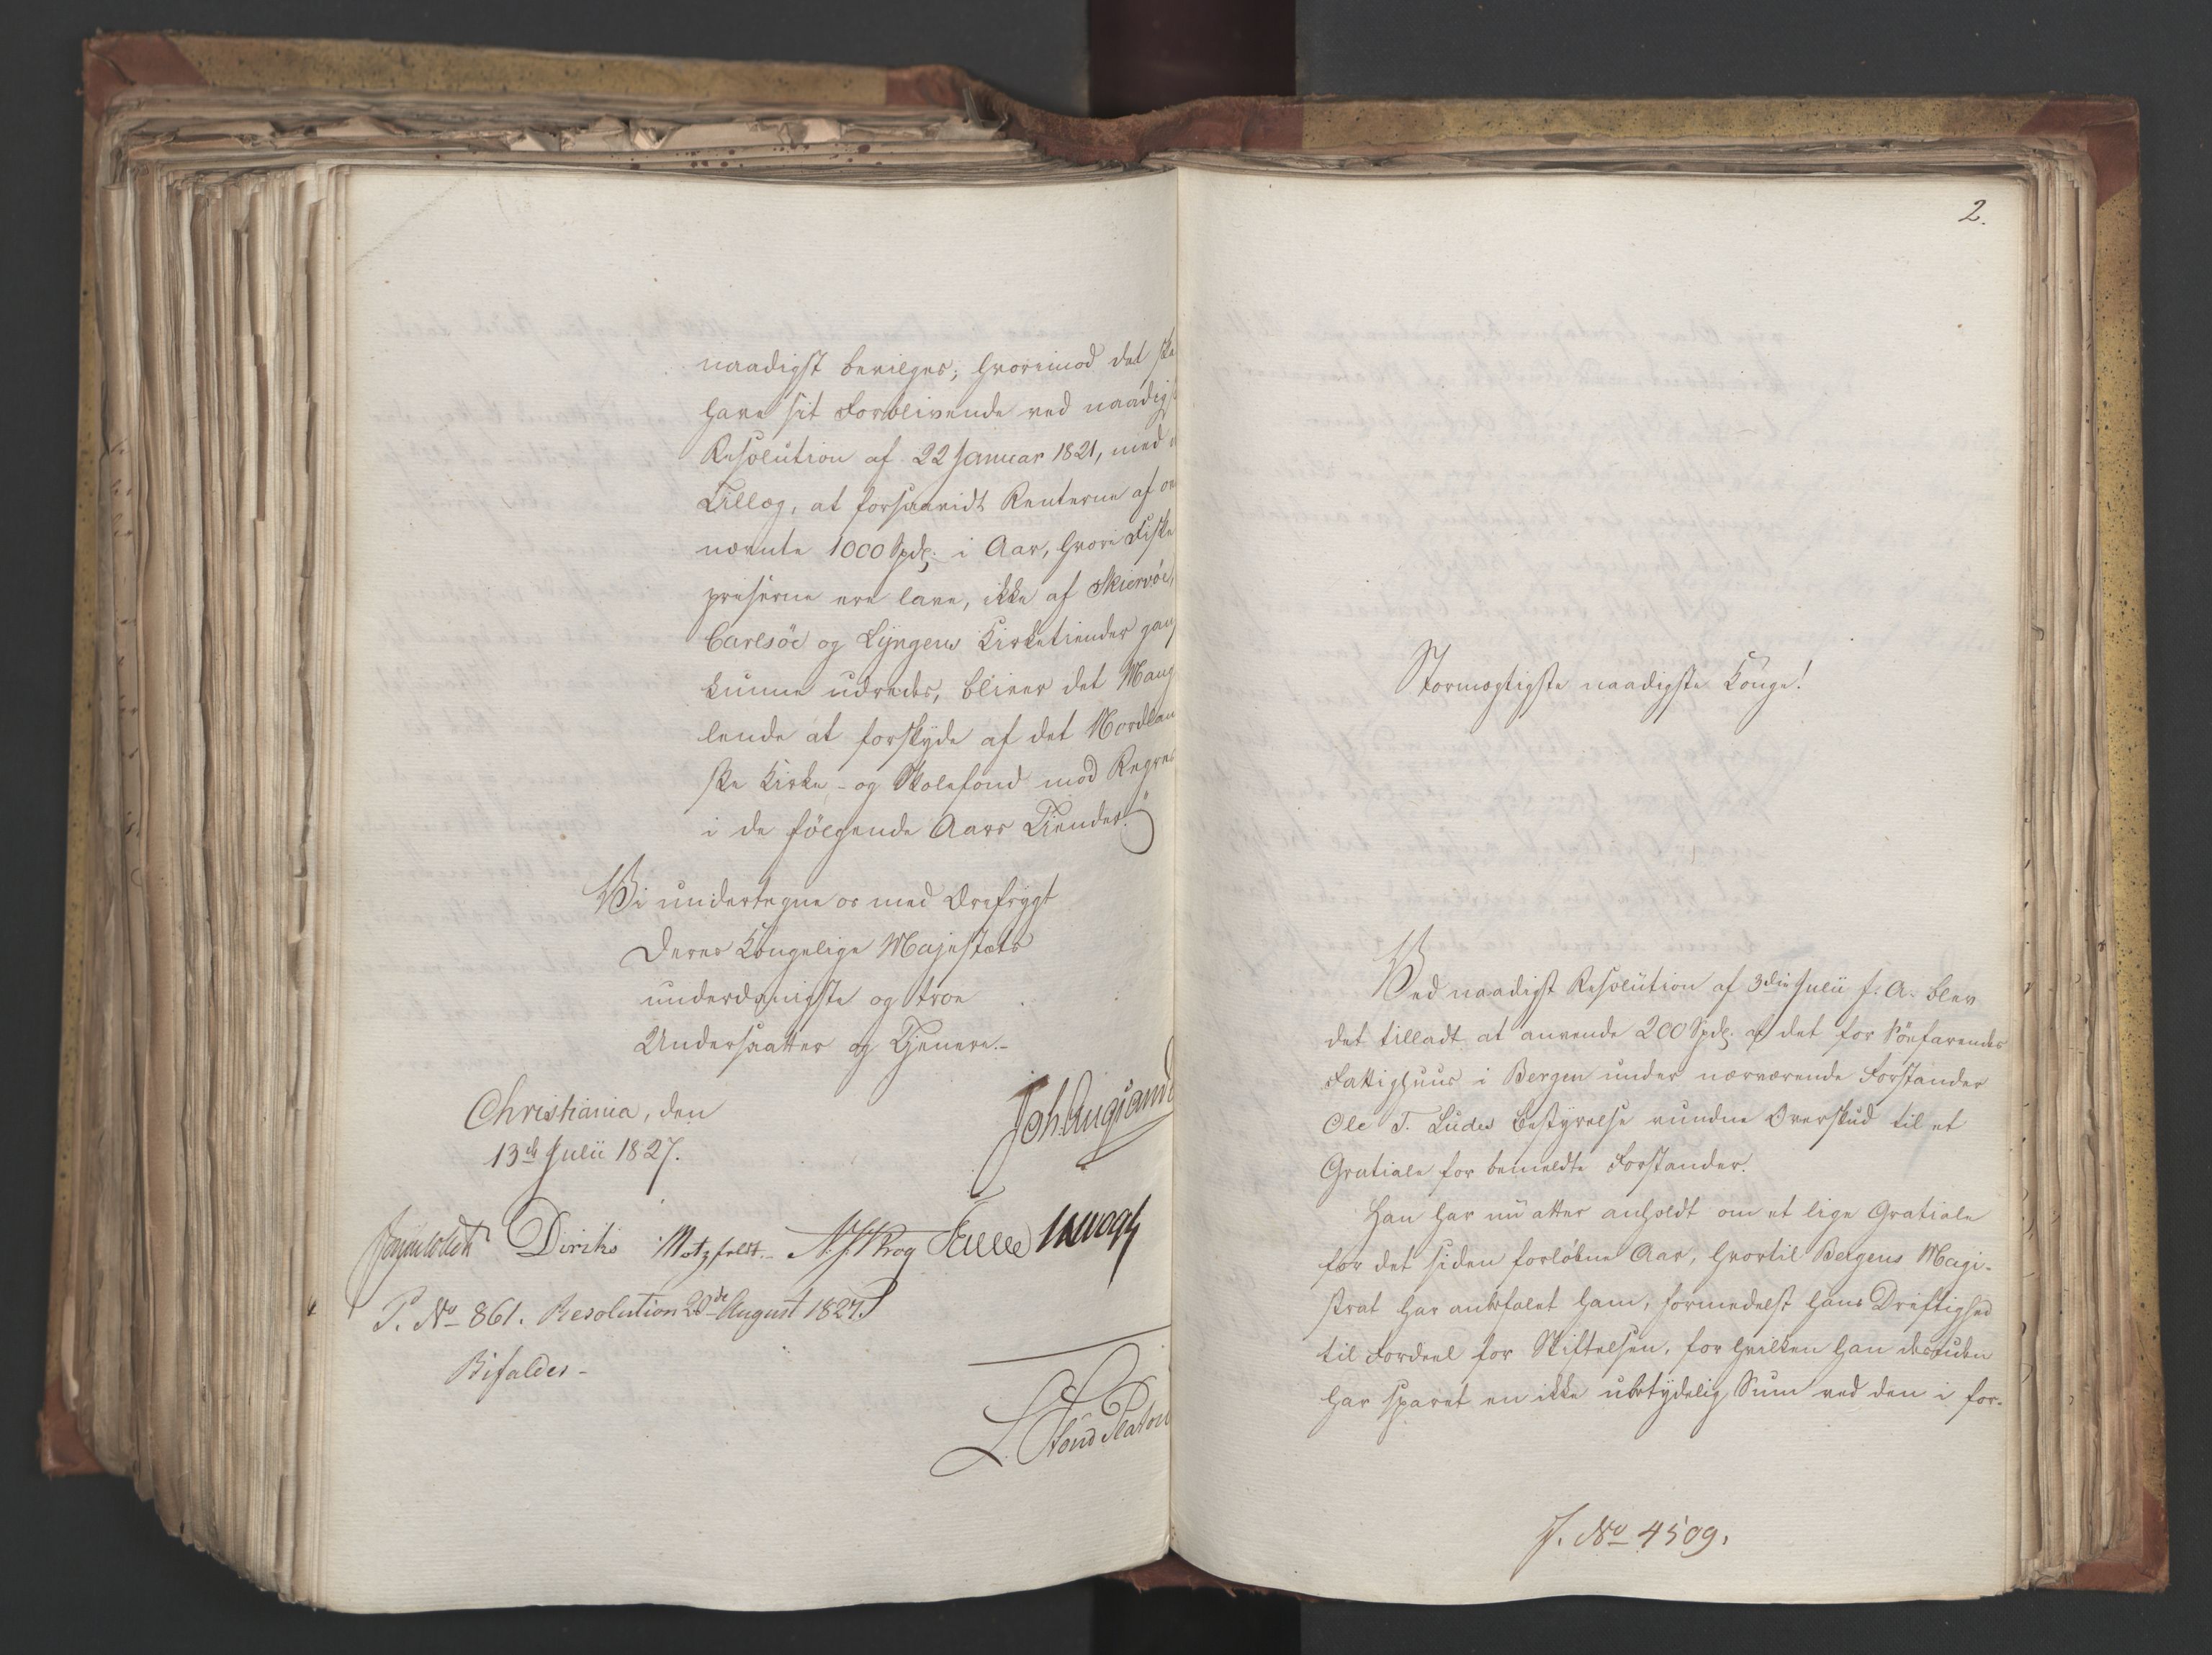 naadigst bevilges; hvorimod det ska
have sit Forblivende ved naadigst
Resolution af 22 Januar 1821, med
Tillæg, at forsaavidt Renterne af
nævnte 1000 Spd. i Aar, hvori Fiske
priserne ere lave, ikke af Skiervöe,
Carlsöe og Lyngens Kirketiender
kunne udredes, bliver det Mang
lende at forskyde af det Nordlan
ske Kirke- og Skolefond mod Regres
i de fölgende Aars Tiender."
Vi undertegne os med Ærefrygt
Deres Kongelige Majestæts
underdanigste og troe
Undersaatter og Tjenere.-
Christiania, den
13de Julii 1827.
Diriks Motzfeldt. Krog
P. No 861. Resolution 20de August 1827.
Bifaldes-
2.
Stormægtigste naadigste Konge!
Ved naadigst Resolution af 3die Julii f. A. blev
det tilladt at anvende 200 Spd. af det for Söefarendes
Fattighuus i Bergen under nærværende Forstander
Ole T. Lüdes Bestyrelse vundne Overskud til et
Gratiale for bemeldte Forstander.
Han har nu atter anholdt om et lige Gratiale
for det siden forløbne Aar, hvortil Bergens Magi-
strat har anbefalet ham, formedelst hans Driftighed
til Fordeel for Stiftelsen, for hvilken han desuden
har sparet en ikke ubetydelig Sum ved den i for-
J. No 4509.